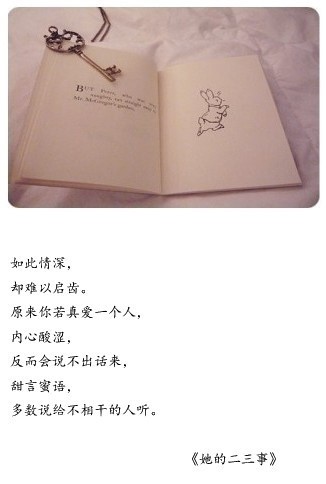 BUT Peter, who was very
naughty, ran straight away to
Mr. McGregor's garden,
如此情深，
却难以启齿。
原来你若真爱一个人，
内心酸涩，
反而会说不出话来，
甜言蜜语，
多数说给不相干的人听。
《她的二三事》